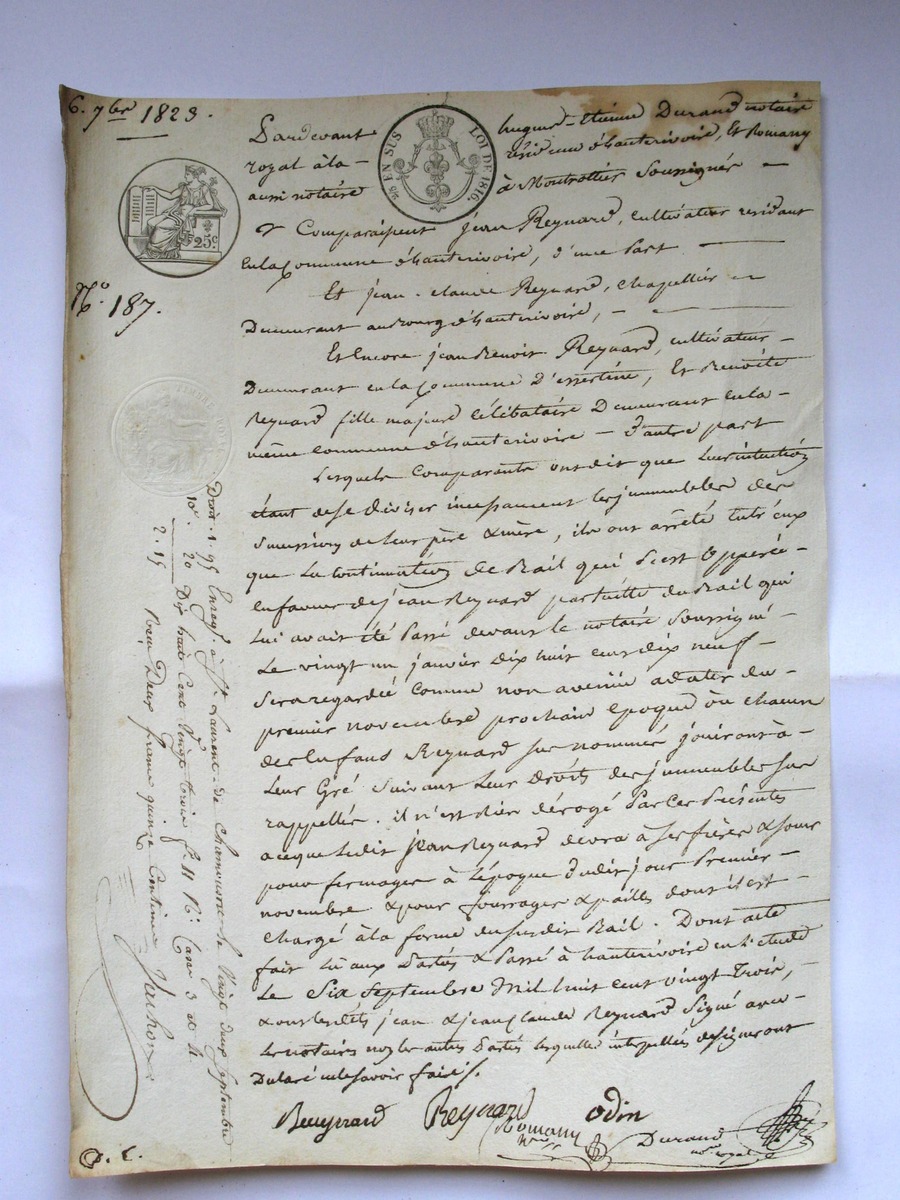 6. 7bre 1823.
Pardevant hugues-Etienne Durand notaire
royal à la résidence d'hauterivoire, Et Romany
aussi notaire à Montrottier Soussignés
EN SUS LOI DE 1816.
25c
Nº 187.
& Comparaissent jean Reynard, cultivateur residant
en la Commune d'hauterivoire, d'une part
Et jean-claude Reynard, chapellier
Demeurant au Bourg d'hauterivoire,
Et Encore jean Benoit Reynard, cultivateur
Demeurant en la Commune D'essertine, Et Benoite
Reynard fille majeure Célibataire Demeurant en la
même commune d'hauterivoire - D'autre part
Lesquels Comparants ont dit que Leur intention
étant de se diviser incessament les jmmeubles des
Succession de leur père & mère, ils ont arrêté Entr'eux
que La Continuation de Bail qui s'est Opperée
en faveur de jean Reynard par suitte du Bail qui
Lui avait été Passé devant le notaire Soussigné
Le vingt un janvier Dix huit cent dix neuf
Sera regardée comme non avenue a dater du
premier novembre prochain époque où chacun
des Enfans Reynard sus nommés jouiront à
Leur Gré Suivant Leur Droits des jmmeubles sus
rappellés. il n'est Rien dérogé Par Ces Présentes
a ce que Ledit jean Reynard devra à Ses frères & soeur
pour fermages à L'époque Dudit jour Premier
novembre & pour fourrages & pailles dont il est
Chargé à la forme du susdit Bail. Dont acte
fait Lu aux Parties & Passé à hauterivoire en L'étude
Le Six Septembre Mil huit cent vingt Trois,
& ont lesdits jean & jean Claude Reynard Signé avec
Les notaires non les autres Parties lesquelles interpellées de signer ont
Declaré ne le savoir faire.
Reynard Reynard Odin
Romany
nre
Durand
nre royal
Droit 1.95 Enregé à St Laurent de Chamousset le Vingt deux Septembre
10e. 20 Dix huit Cent Vingt trois fº 11 Rº Case 3 et 4
2.15 Reçu Deux francs quinze Centimes
D. C.